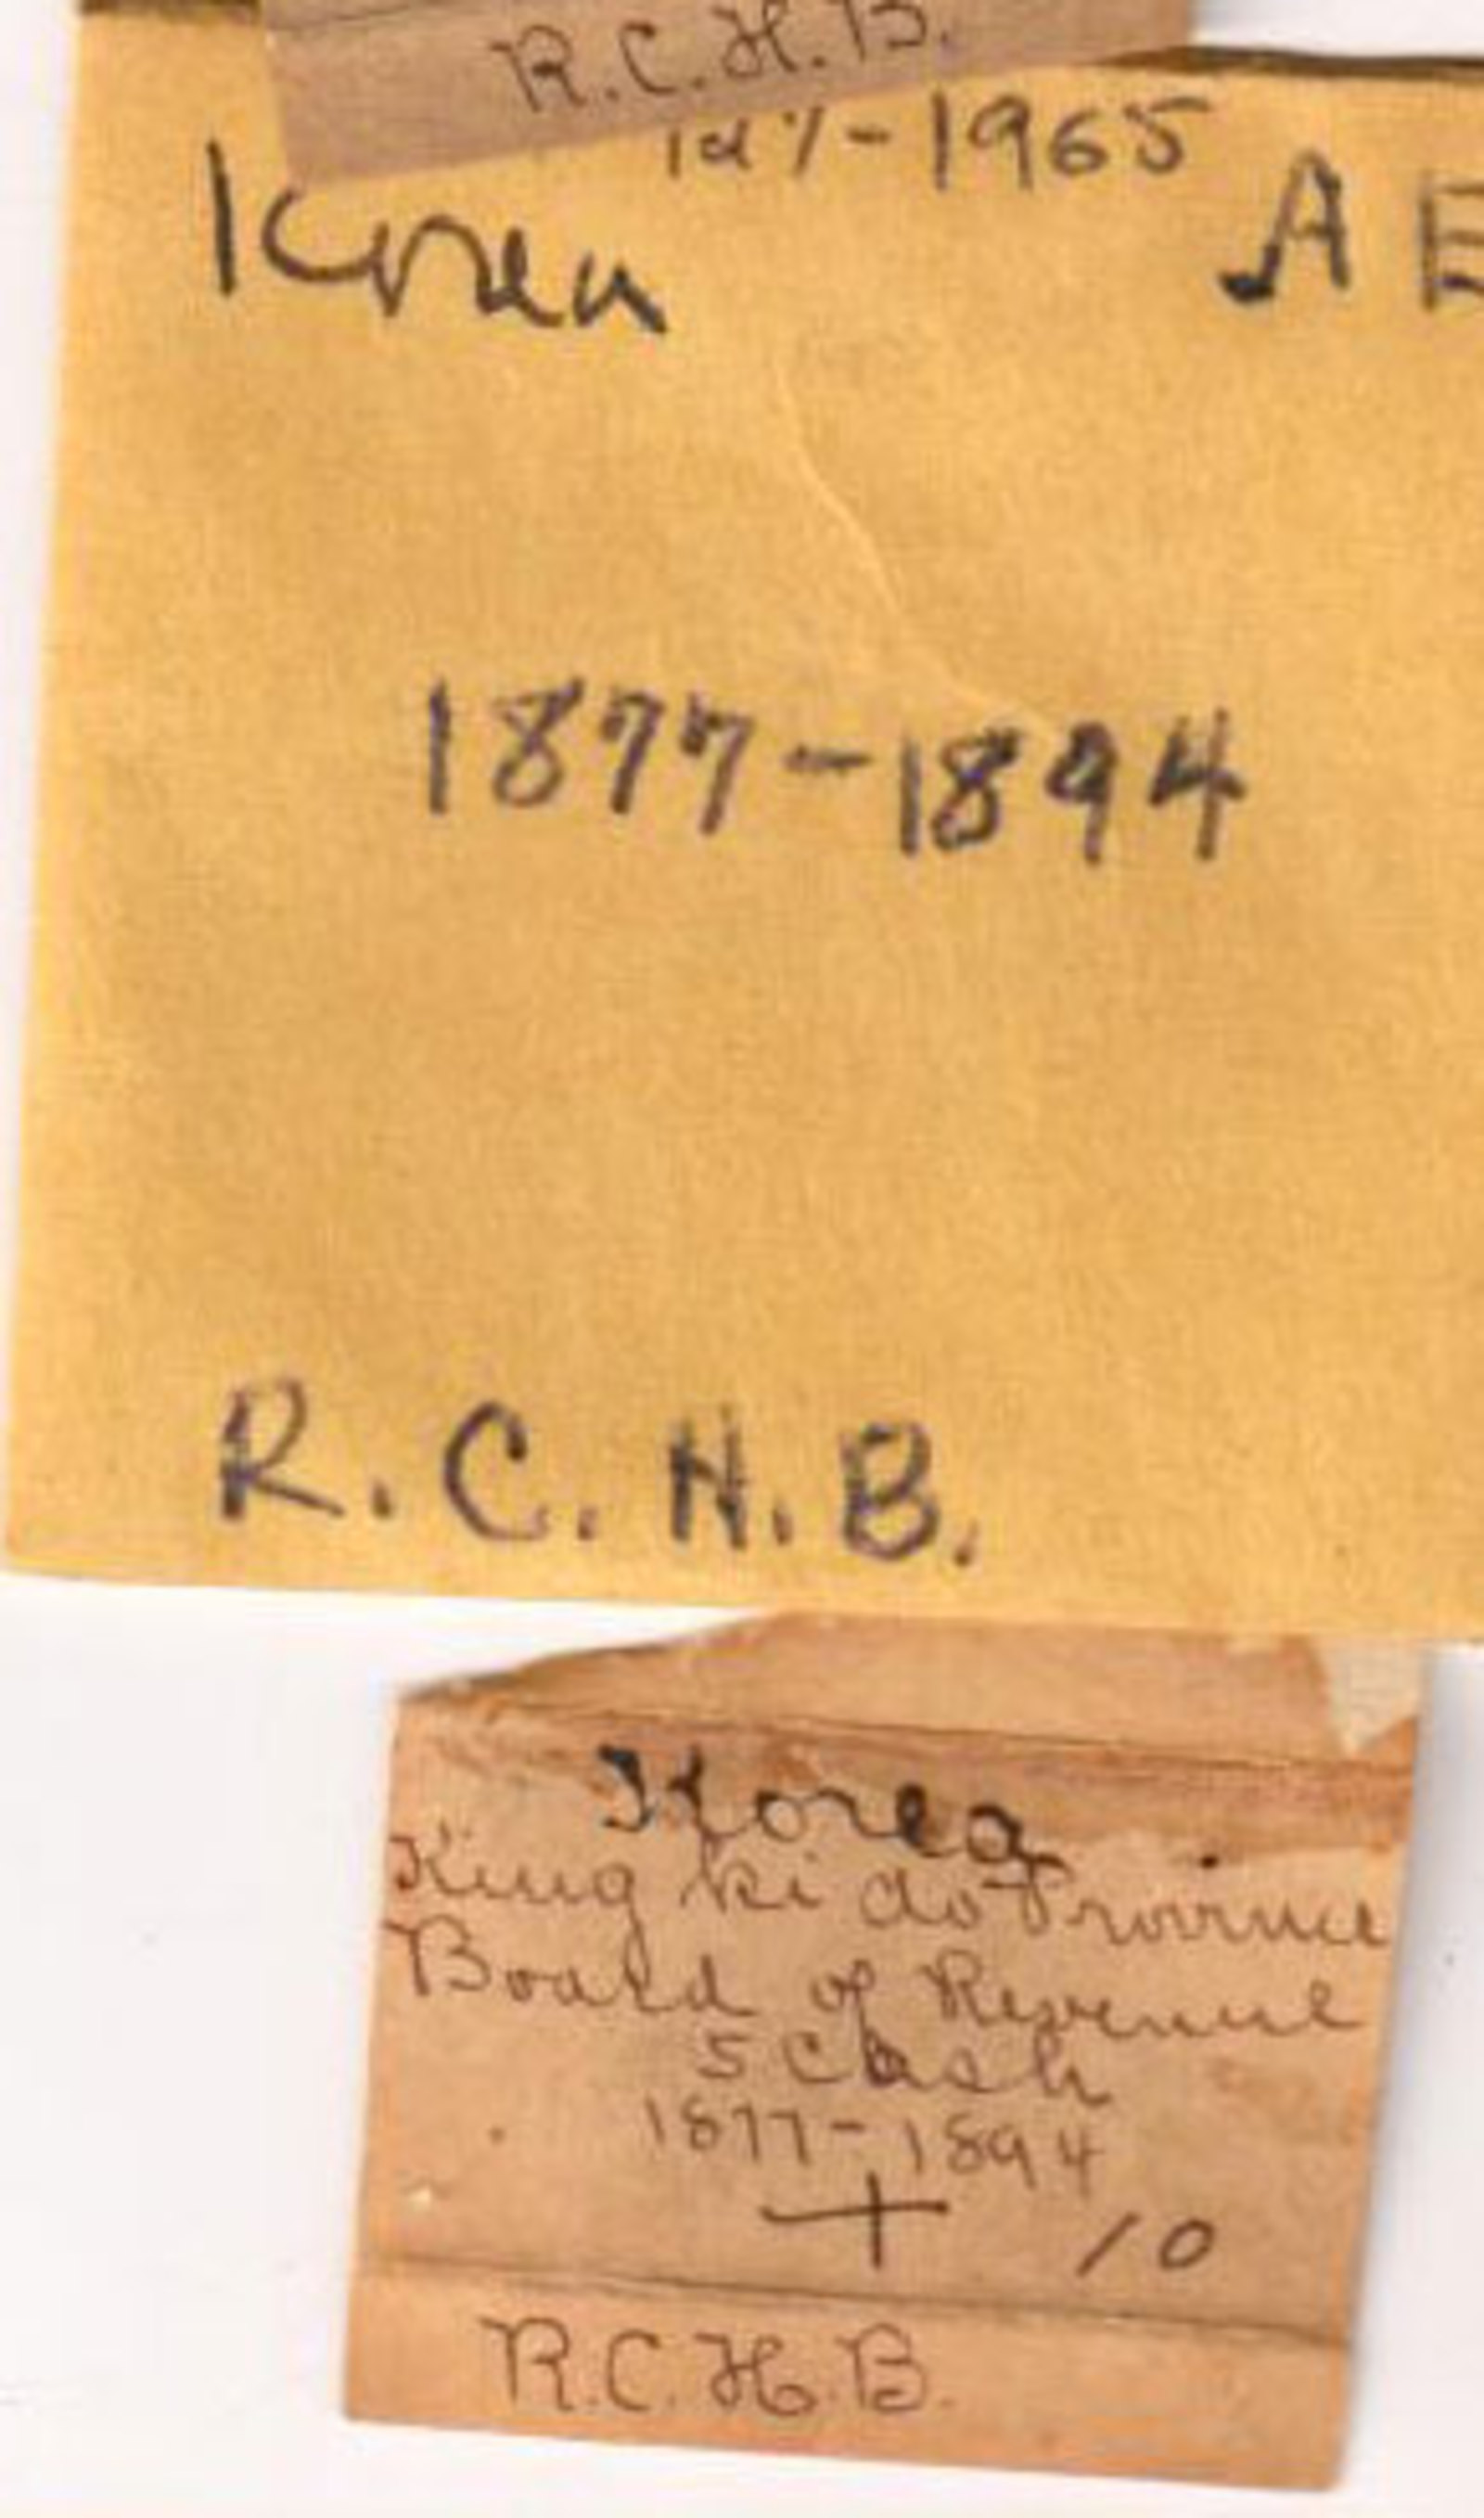 R.C.H.B.
-1965
Korea
A E
1877-1894
R.C.H.B.
Korea
King ki do Province
Board of Revenue
5 Cash
1877-1894
+ 10
R.C.H.B.